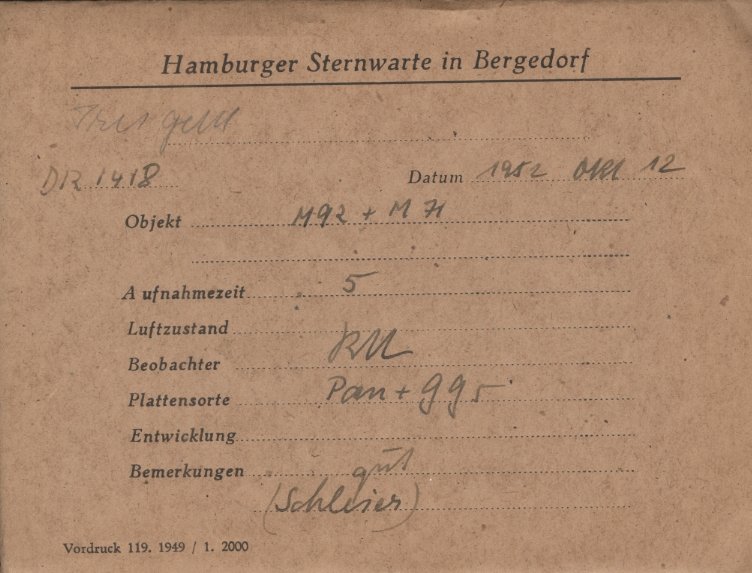 Hamburger Sternwarte in Bergedorf
DR 1418 Datum 1952 Okt 12
Objekt M92 + M H
Aufnahmezeit 5
Luftzustand
Beobachter
Plattensorte Pan + gg5
Entwicklung
Bemerkungen gut
(Schleier)
Vordruck 119. 1949 / 1. 2000